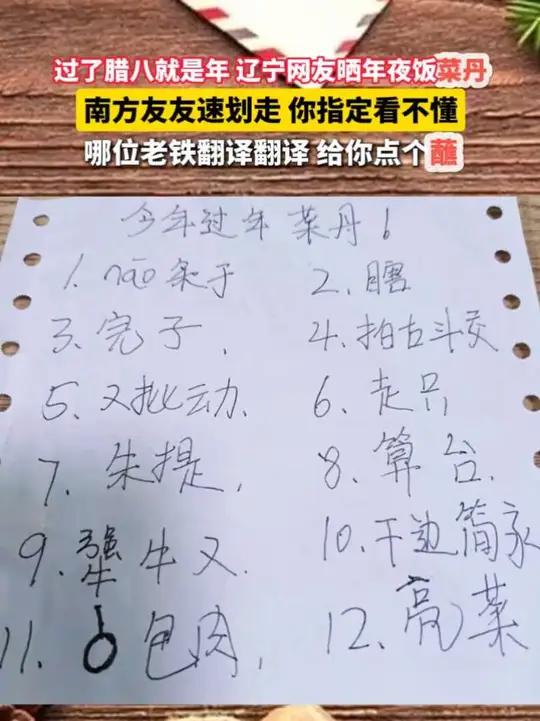 过了腊八就是年 辽宁网友晒年夜饭菜丹
南方友友速划走 你指定看不懂
哪位老铁翻译翻译 给你点个蘸
今年过年 菜丹!
1. năo 条子 2. 瞎
3. 完子, 4. 拍古斗交
5. 又批动. 6. 走只
7. 朱提, 8. 算台.
9. 牛又. 10. 干边简家
11. 包肉, 12. 亮菜